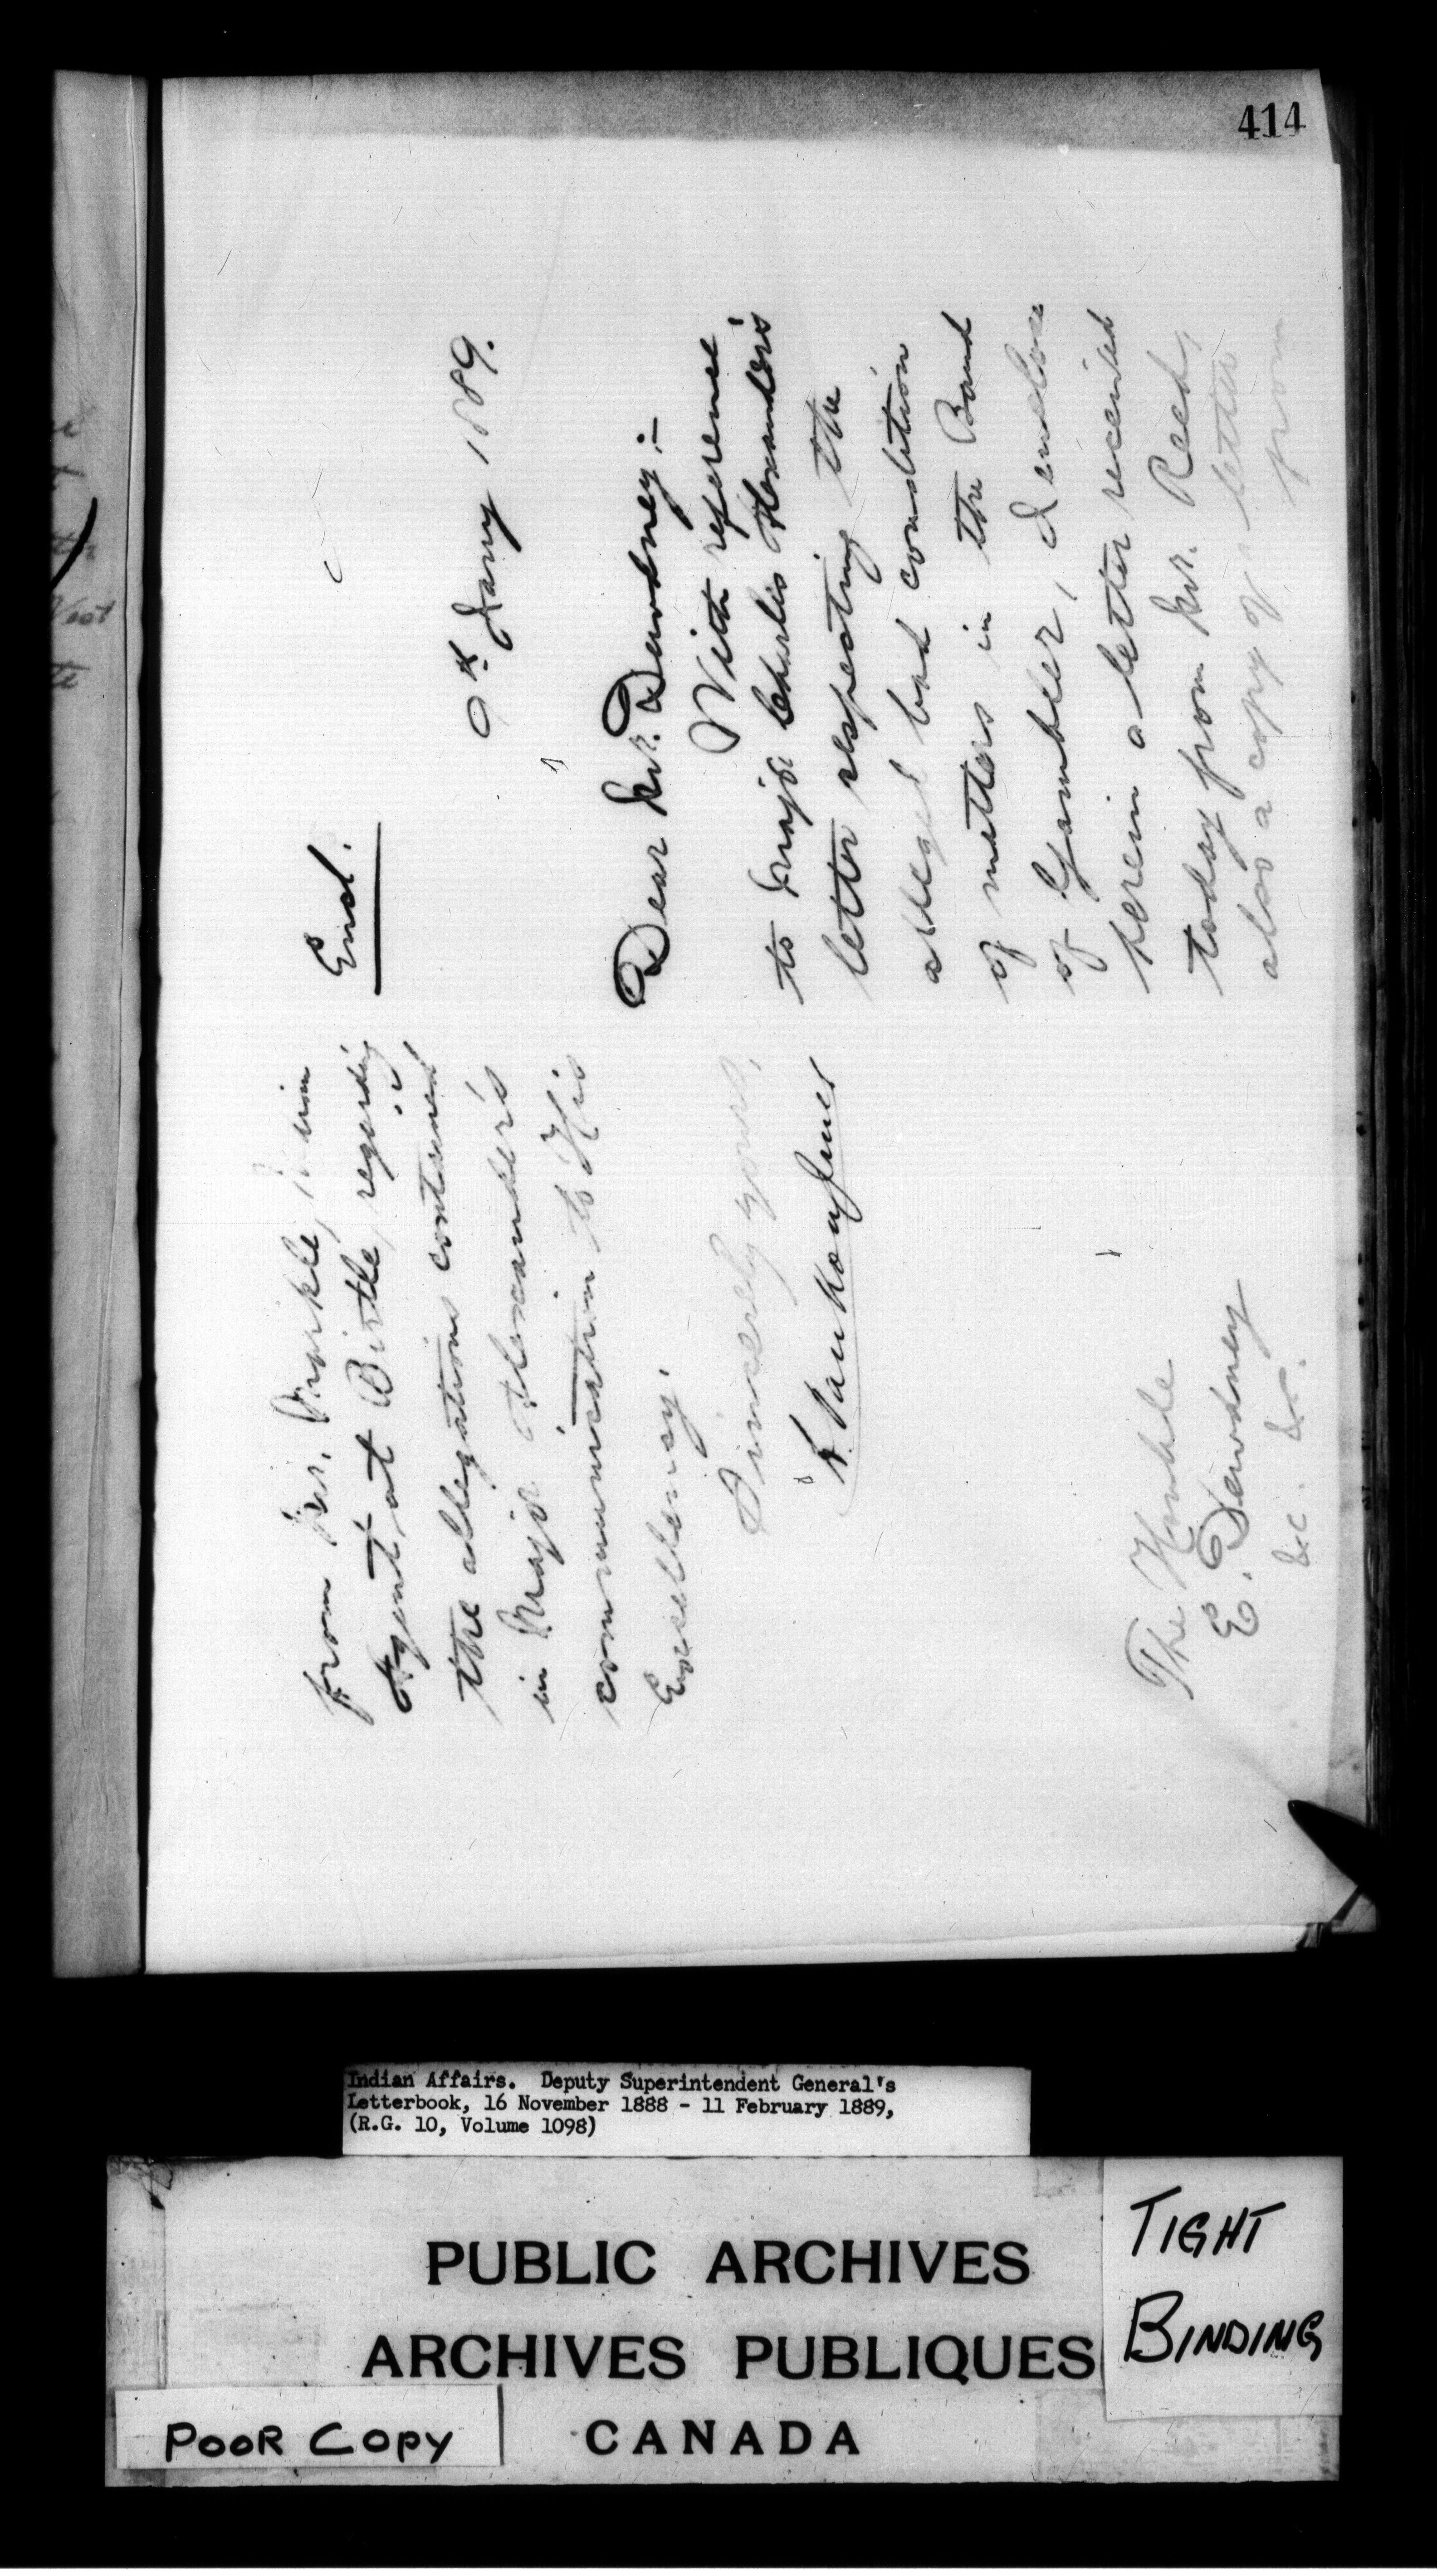 414
Encl.
9th Jany 1889.
Dear Mr. Dewdney:-
With reference
to Major Charles Alexander's
letter respecting the
alleged bad condition
of matters in the Band
of Gambler, I enclose
herein a letter received
today from Mr. Reed,
also a copy of a letter
from
from Mr. Markle,
Agent at Birtle, regarding
the allegations contained
in Major Alexander's
communication to His
Excellency.
Sincerely yours,
L. Vankoughnet
The Honble
E. Dewdney
&c. &c.
Indian Affairs. Deputy Superintendent General's
Letterbook, 16 November 1888 - 11 February 1889,
(R.G. 10, Volume 1098)
PUBLIC ARCHIVES
ARCHIVES PUBLIQUES
CANADA
TIGHT
BINDING
POOR COPY